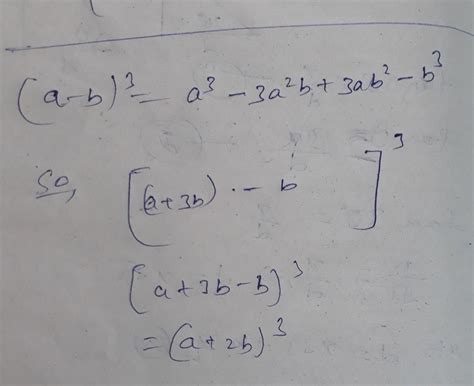 (a-b)³ = a³ - 3a²b + 3ab² - b³
So, [(a+3b) - b]³
(a+3b-b)³
= (a+2b)³